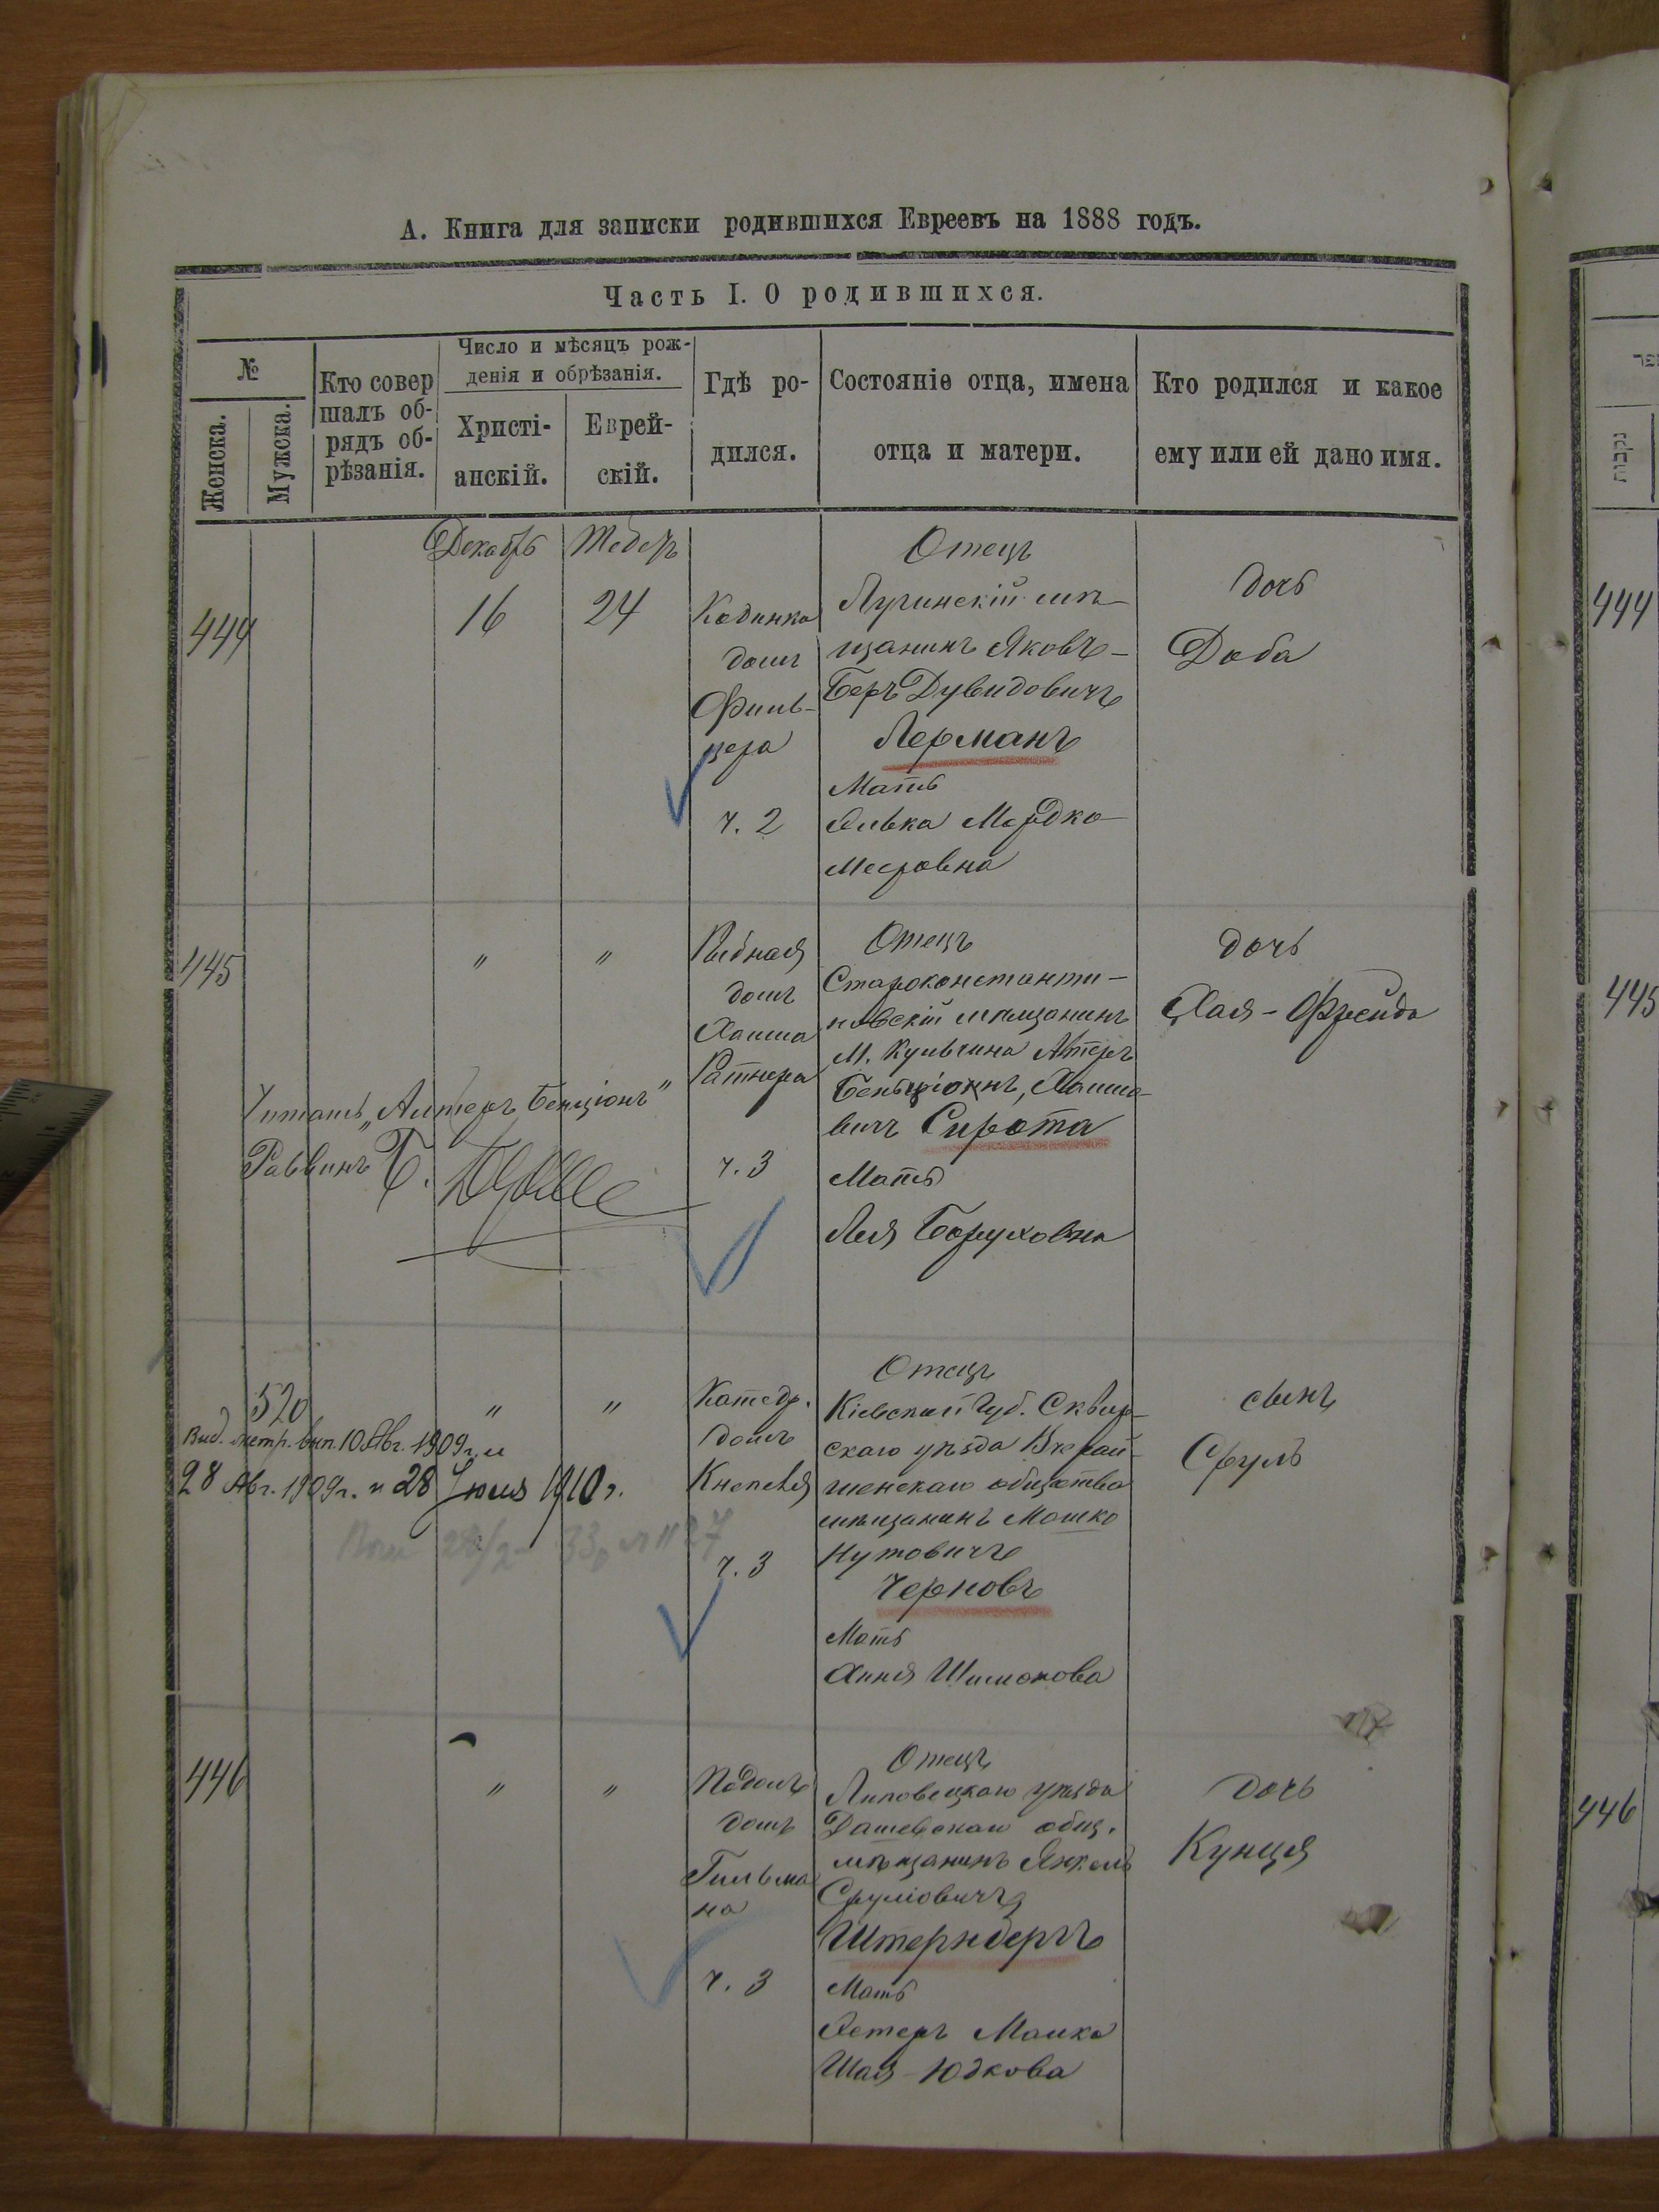 А. Книга для записки родившихся Евреевъ на 1888 годъ.
Часть I. О родившихся.
№
Женска.
Мужска.
Кто совер
шалъ об-
рядъ об-
рѣзанія.
Число и мѣсяцъ рож-
денія и обрѣзанія.
Христі-
анскій.
Еврей-
скій.
Гдѣ ро-
дился.
Состояніе отца, имена
отца и матери.
Кто родился и какое
ему или ей дано имя.
Декабрь
Тебетъ
444
16
24
домъ
ч. 2
Отецъ
Лугинскій мѣ-
щанинъ Яковъ-
Беръ Дувидовичъ
Лерманъ
Мать
Мордко-
Мееровна
дочь
Доба
445
"
"
Рыбная
домъ
Хаима
Ратнера
ч. 3
Отецъ
Староконстанти-
новскій мѣщанинъ
М. Кульчина Алтеръ
Бенціонъ, Хаимо-
вичъ Сирота
Мать
Лея Боруховна
дочь
Хая-Фрейда
Читать „Алтеръ Бенціонъ"
Раввинъ Б.
520
"
"
Вид. метр. вып. 10 Авг. 1909 г. и
28 Авг. 1909 г. и 28 Іюля 1910 г.
Катедр.
домъ
ч. 3
Отецъ
Кіевской Губ. Сквир-
скаго уѣзда Вчерай-
шенскаго общества
мѣщанинъ Мошко
Нутовичъ
Черновъ
Мать
Шимонова
сынъ
Сруль
446
"
"
домъ
Гильма
на
ч. 3
Отецъ
Липовецкаго уѣзда
Дашевскаго общ.
мѣщанинъ Янкель
Сруліовичъ
Штернбергъ
Мать
Эстеръ Мошко
Шая-Юдкова
дочь
Кунця
444
445
446